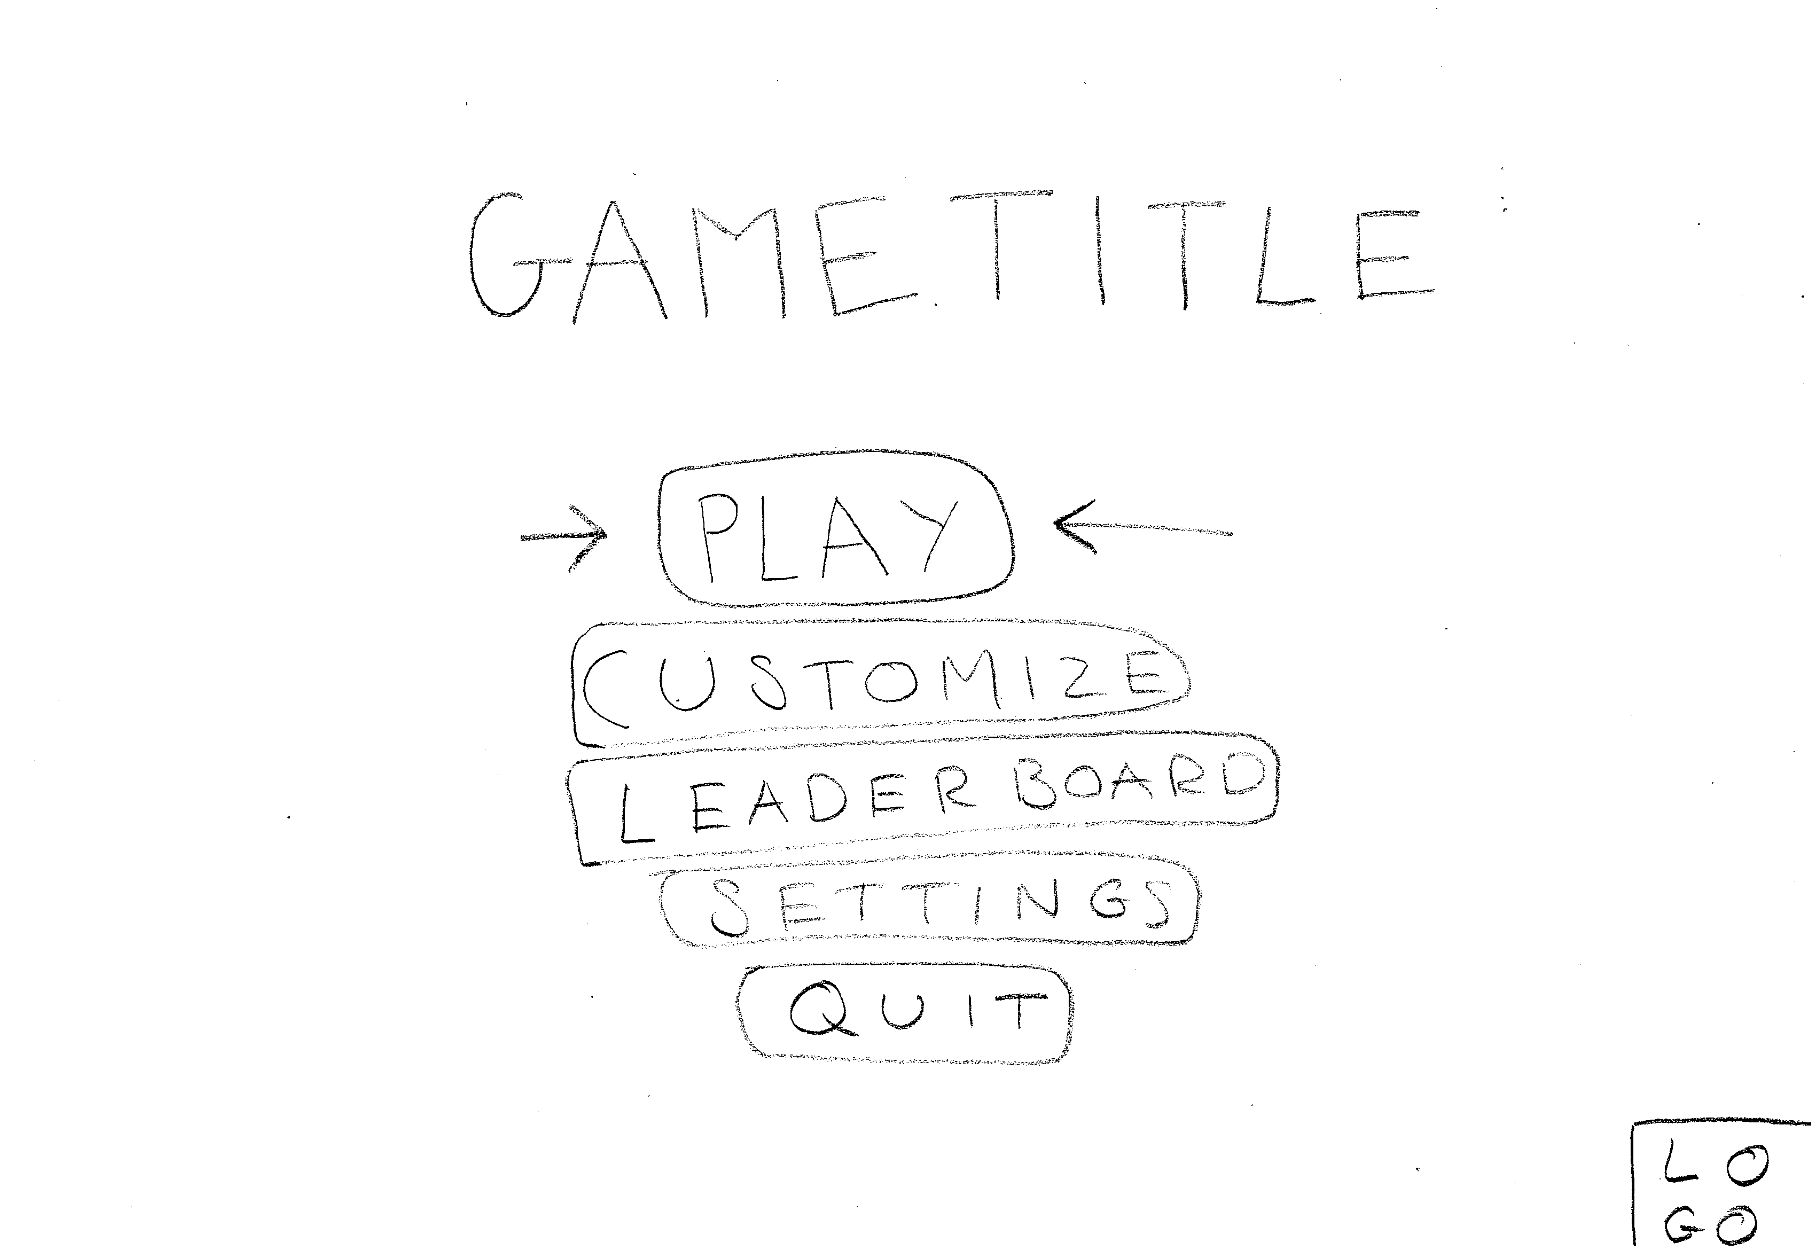 GAME TITLE
PLAY
CUSTOMIZE
LEADERBOARD
SETTINGS
QUIT
LO
GO